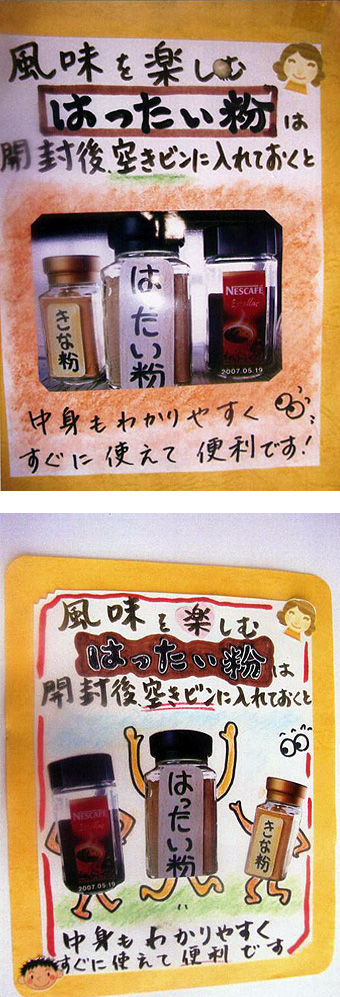 風味を楽しむ
はったい粉は
開封後、空きビンに入れておくと
きな粉
はったい粉
NESCAFÉ
Excella
2007.05.19
中身もわかりやすく
すぐに使えて便利です!
風味を楽しむ
はったい粉は
開封後、空きビンに入れておくと
NESCAFÉ
2007.05.19
はったい粉
きな粉
中身もわかりやすく
すぐに使えて便利です